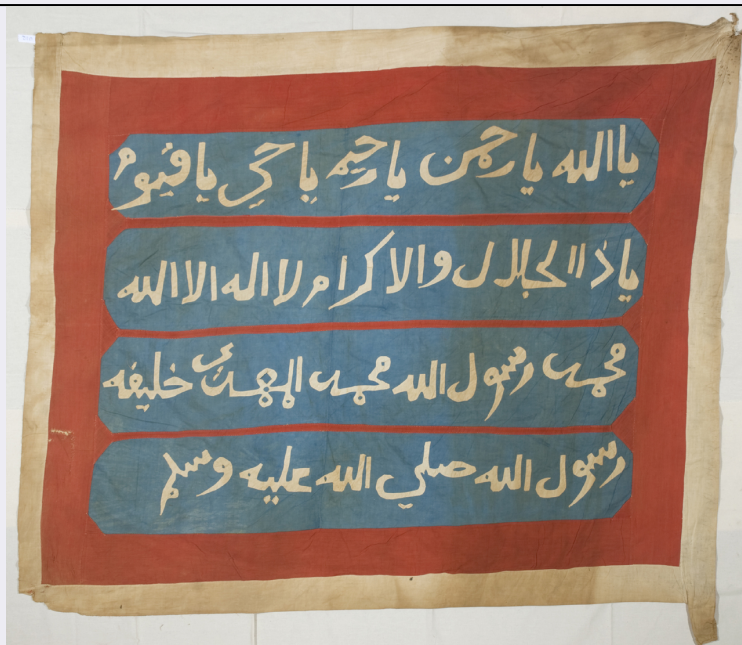 يا الله يا رحمن يا رحيم يا حي يا قيوم
يا ذا الجلال والاكرام لا اله الا الله
محمد رسول الله محمد المهدي خليفه
رسول الله صلي الله عليه وسلم